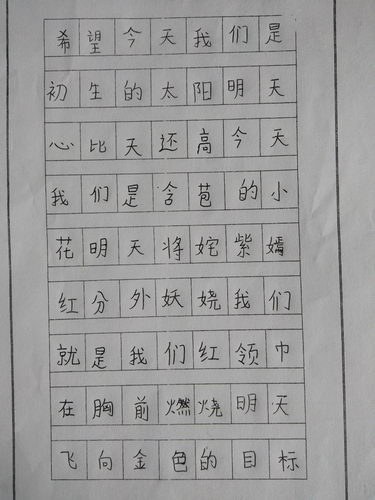 希望今天我们是
初生的太阳明天
心比天还高今天
我们是含苞的小
花明天将姹紫嫣
红分外妖娆我们
就是我们红领巾
在胸前燃烧明天
飞向金色的目标